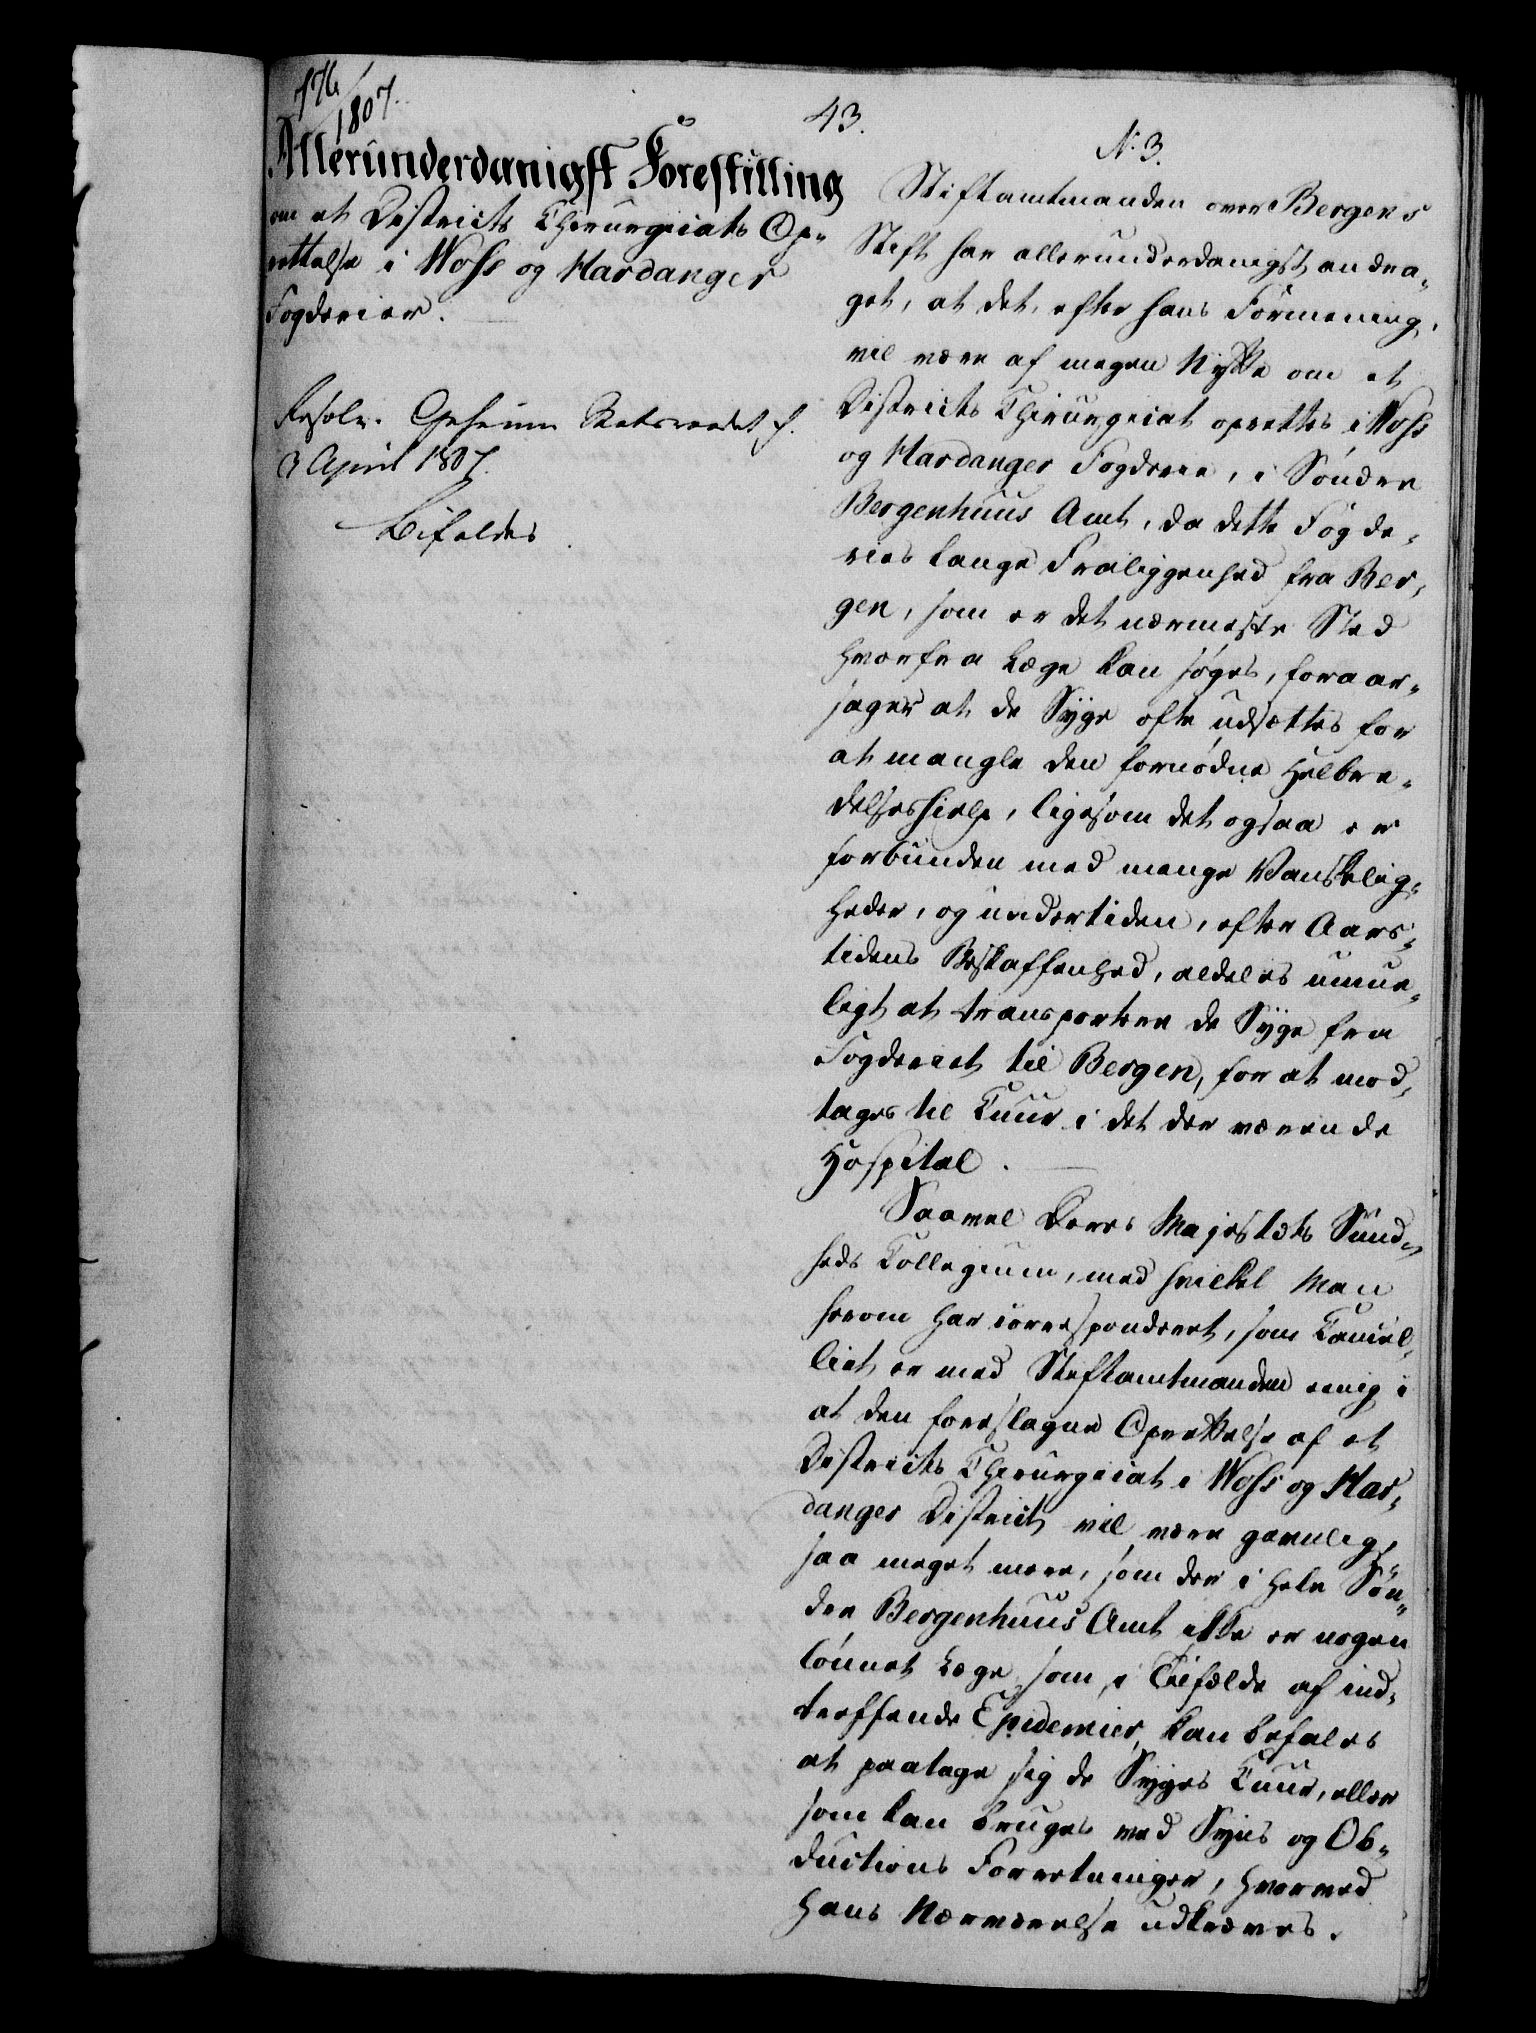 1807.
43.
N. 3.
Allerunderdanigst Forestilling
om et Districts Chirurgicats Op-
rettelse i Woss og Hardanger
Fogderier.
Resolv. Geheime Statsraadet d.
3 April 1807.
Bifaldes.
Stiftamtmanden over Bergens
Stift har allerunderdanigst andra-
get, at det, efter hans Formening,
vil være af megen Nytte om et
Districts Chirurgicat oprettes i Woss
og Hardanger Fogderie, i Sønder
Bergenhuus Amt, da dette Fogde-
ries lange Fraliggenhed fra Ber-
gen, som er det nærmeste Sted
hvorfra Læge kan søges, foraar-
sager at de Syge ofte udsættes for
at mangle den fornødne Helbre-
delseshielp, ligesom det ogsaa er
forbunden med mange Vanskelig-
heder, og undertiden, efter Aars-
tidens Beskaffenhed, aldeles umue-
ligt at transportere de Syge fra
Fogderiet til Bergen, for at mod-
tages til Cuur i det der værende
Hospital.
Saavel Deres Majestæts Sund-
heds Collegium, med hvilket Man
herom har correspondeert, som Cancel-
liet er med Stiftamtmanden enig i
at den foreslagne Oprettelse af et
Districts Chirurgicat i Woss og Har-
danger District vil være gavnlig,
saa meget mere, som der i hele Søn-
der Bergenhuus Amt ikke er nogen
lønnet Læge, som, i Tilfælde af ind-
treffende Epidemier, kan befales
at paatage sig de Syges Cuur, eller
som kan bruges ved Syns og Ob-
ductions Forretninger, hvorved
hans Nærværelse udkræves.